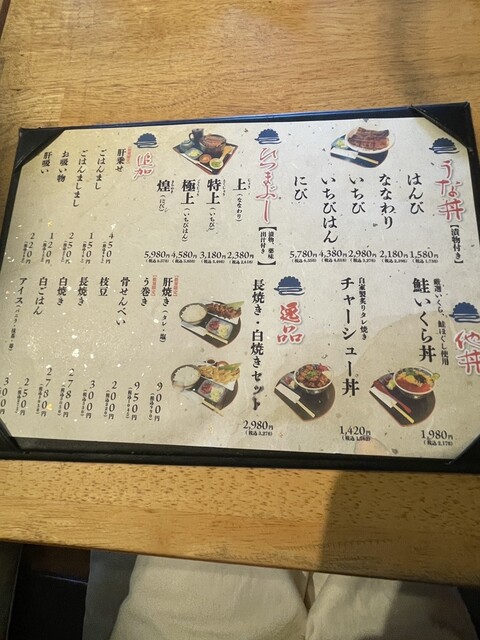 うな丼【漬物付き】
はんび
1,580円
ななわり
2,180円
いちび
2,980円
いちびはん
4,380円
にび
5,780円
ひつまぶし【漬物、薬味 出汁付き】
上(ななわり)
2,380円
特上(いちび)
3,180円
極上(いちびはん)
4,580円
煌(にび)
5,980円
追加
肝乗せ
450円
ごはんまし
150円
ごはんましまし
250円
お吸い物
120円
肝吸い
220円
他丼
厳選いくら、鮭ほぐし使用
鮭いくら丼
1,980円
(税込2,178)
自家製炙りタレ焼き
チャーシュー丼
1,420円
逸品
長焼き・白焼きセット
2,980円
(税込3,278)
肝焼き(タレ・塩)
900円
う巻き
950円
骨せんべい
200円
枝豆
300円
長焼き
2780円
白焼き
2780円
白ごはん
250円
アイス